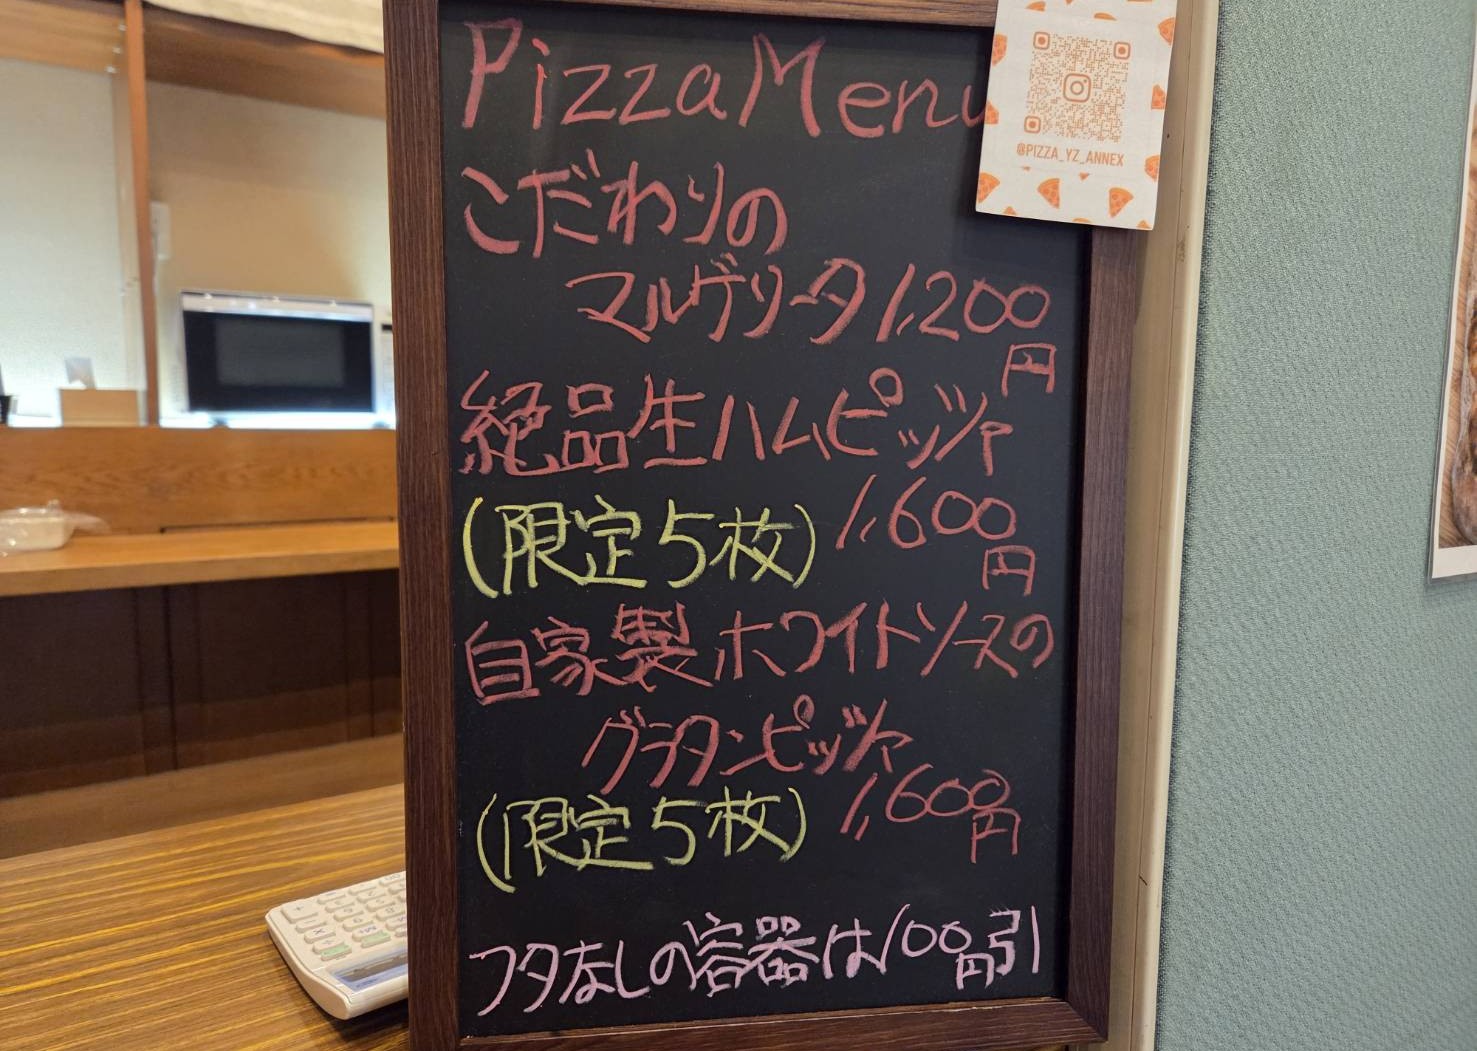 Pizza Menu
@PIZZA_YZ_ANNEX
こだわりの
マルゲリータ 1,200
円
絶品生ハムピッツァ
(限定5枚) 1,600
円
自家製ホワイトソースの
グラタンピッツァ
(限定5枚) 1,600
円
フタなしの容器は100円引